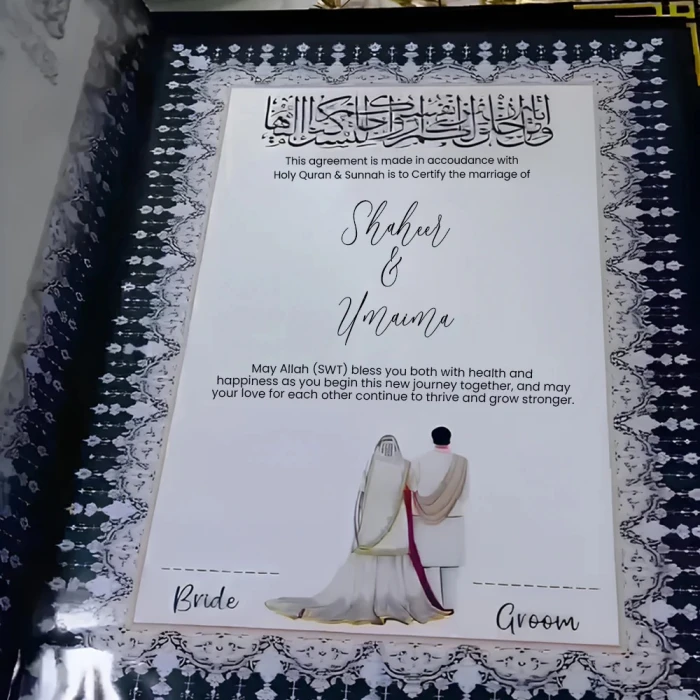 This agreement is made in accoudance with
Holy Quran & Sunnah is to Certify the marriage of
Shaheer
&
Umaima
May Allah (SWT) bless you both with health and
happiness as you begin this new journey together, and may
your love for each other continue to thrive and grow stronger.
Bride
Groom